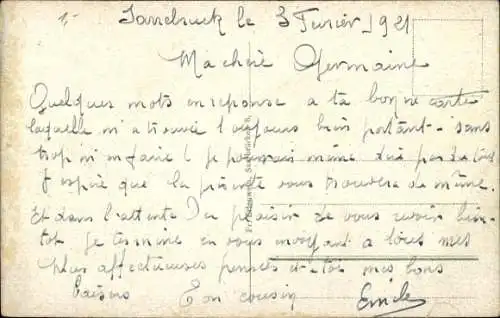 1.-
le 3 Février 1921
Ma chère Germaine
Quelques mots en réponse a ta bonne carte
laquelle m'a trouvé toujours bien portant sans
trop m'en faire je pourrais même dire pas du tout
J'espère que la présente vous trouvera de même.
Et dans l'attente du plaisir de vous revoir bien-
tot je termine en vous envoyant a tous mes
plus affectueuses pensées et a toi mes bons
baisers Ton cousin Emile